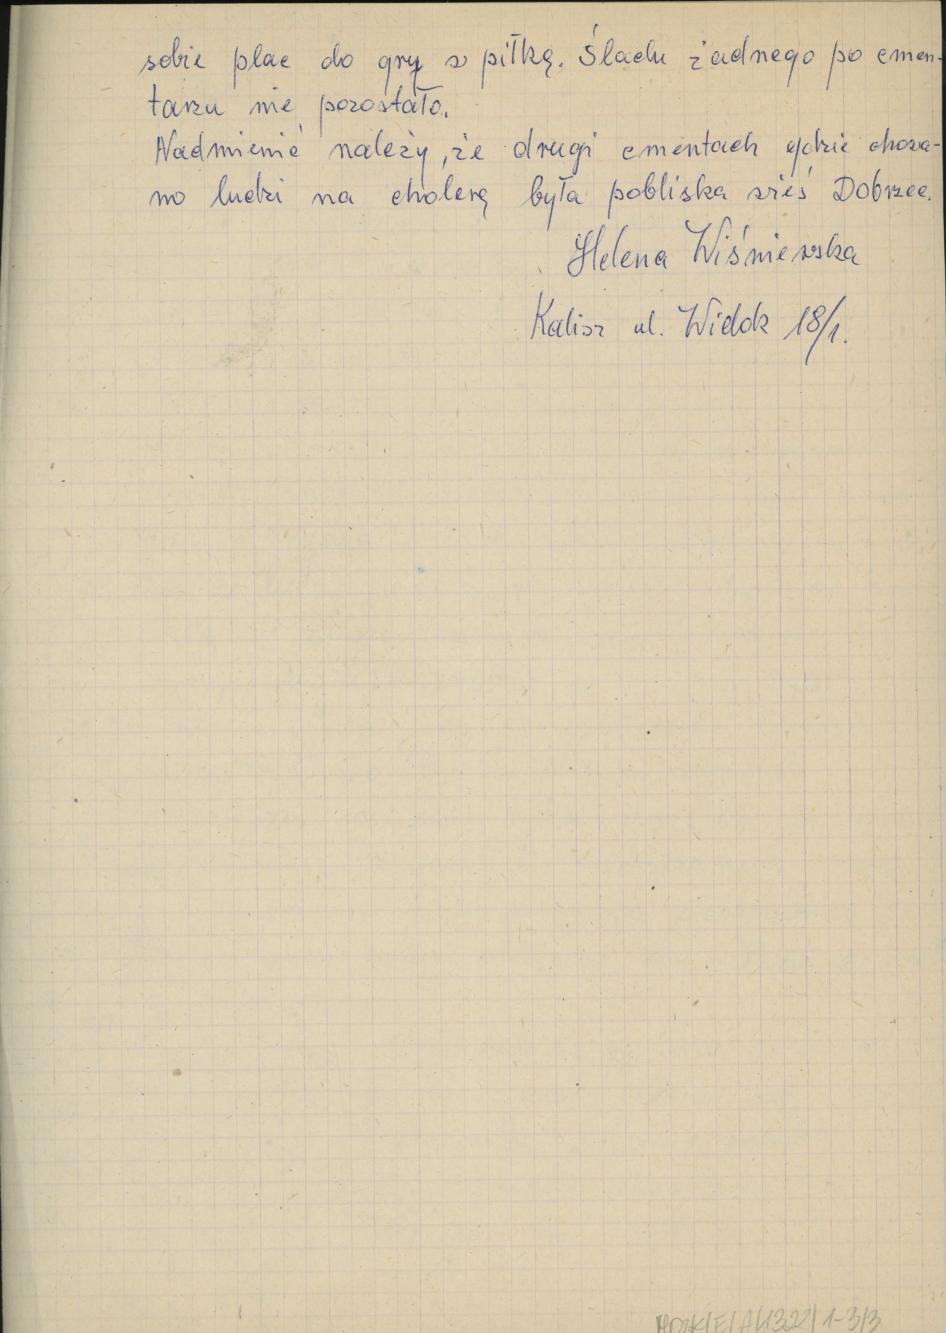 sobie plac do gry w piłkę. Śladu żadnego po cmen-
tarzu nie pozostało.
Nadmienić należy, że drugi cmentach gdzie chowa-
no ludzi na cholerę była pobliska wieś Dobrzec.
Helena Wiśniewska
Kalisz ul. Widok 18/1.
1-3/3